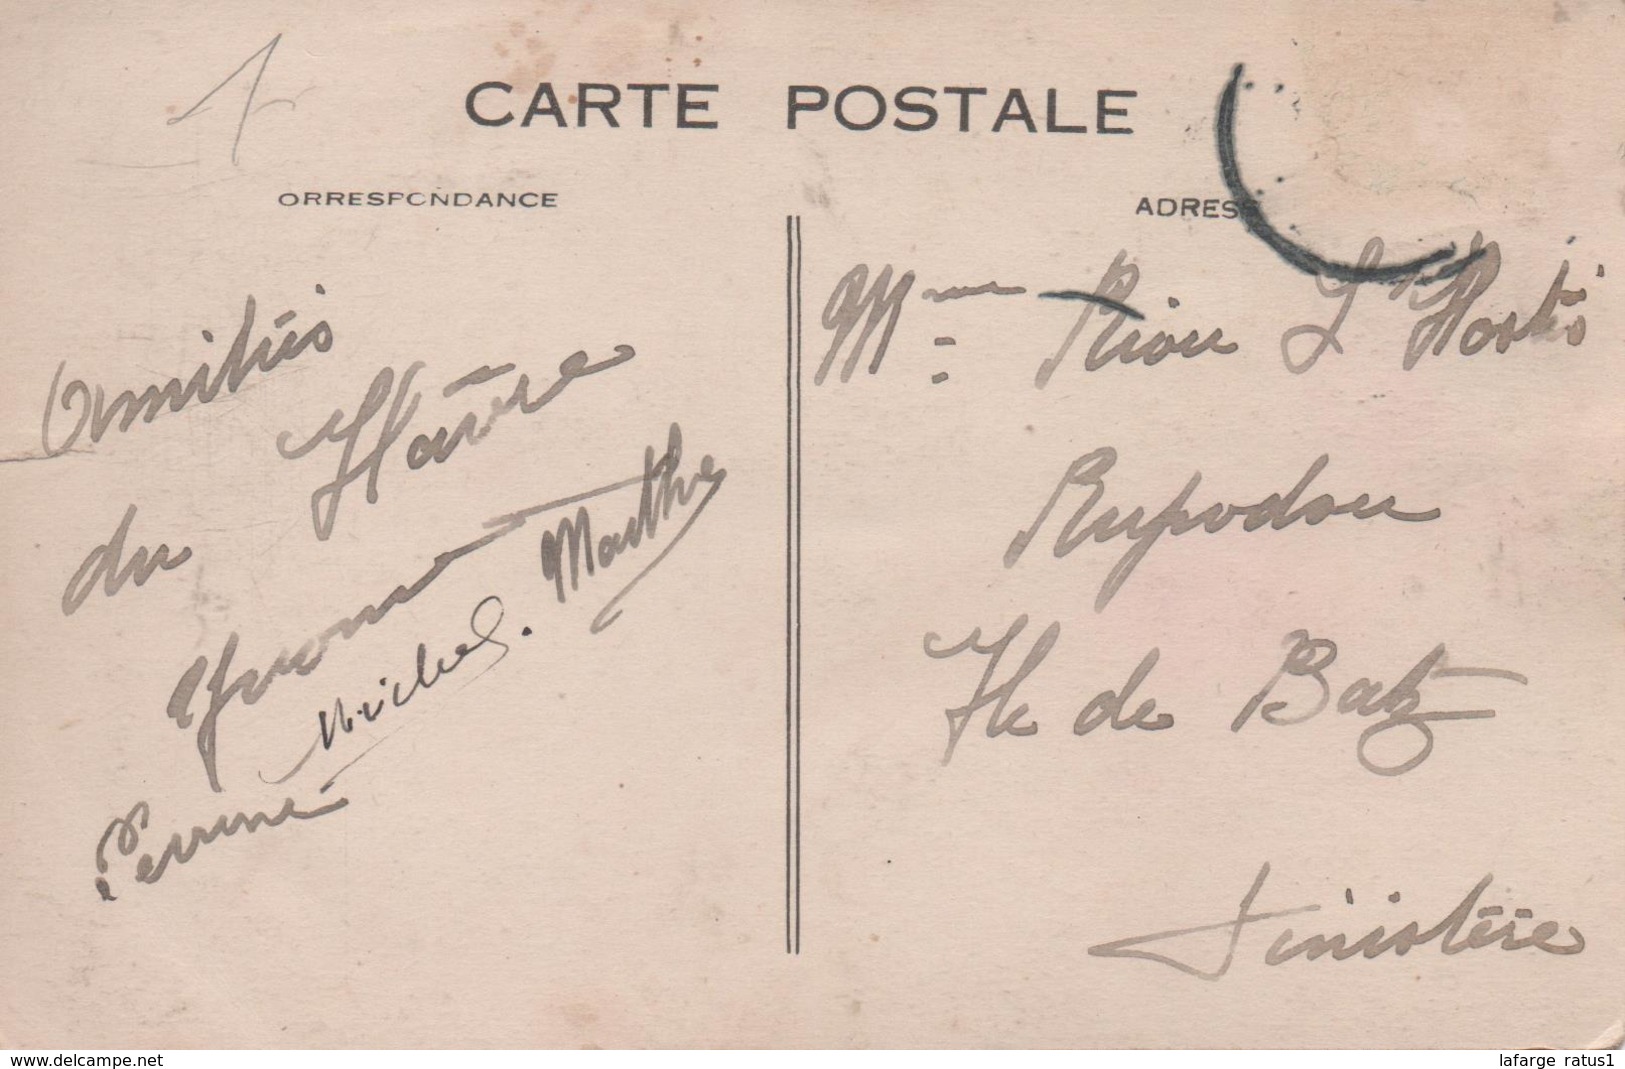 1
CARTE POSTALE
ORRESPONDANCE
ADRESSE
Amitiés
du Hâvre
Yvonne Marthe
Michel.
Perrine
Mme Riou L'Hostis
Rupodou
Ile de Batz
Finistère
www.delcampe.net
lafarge ratus1